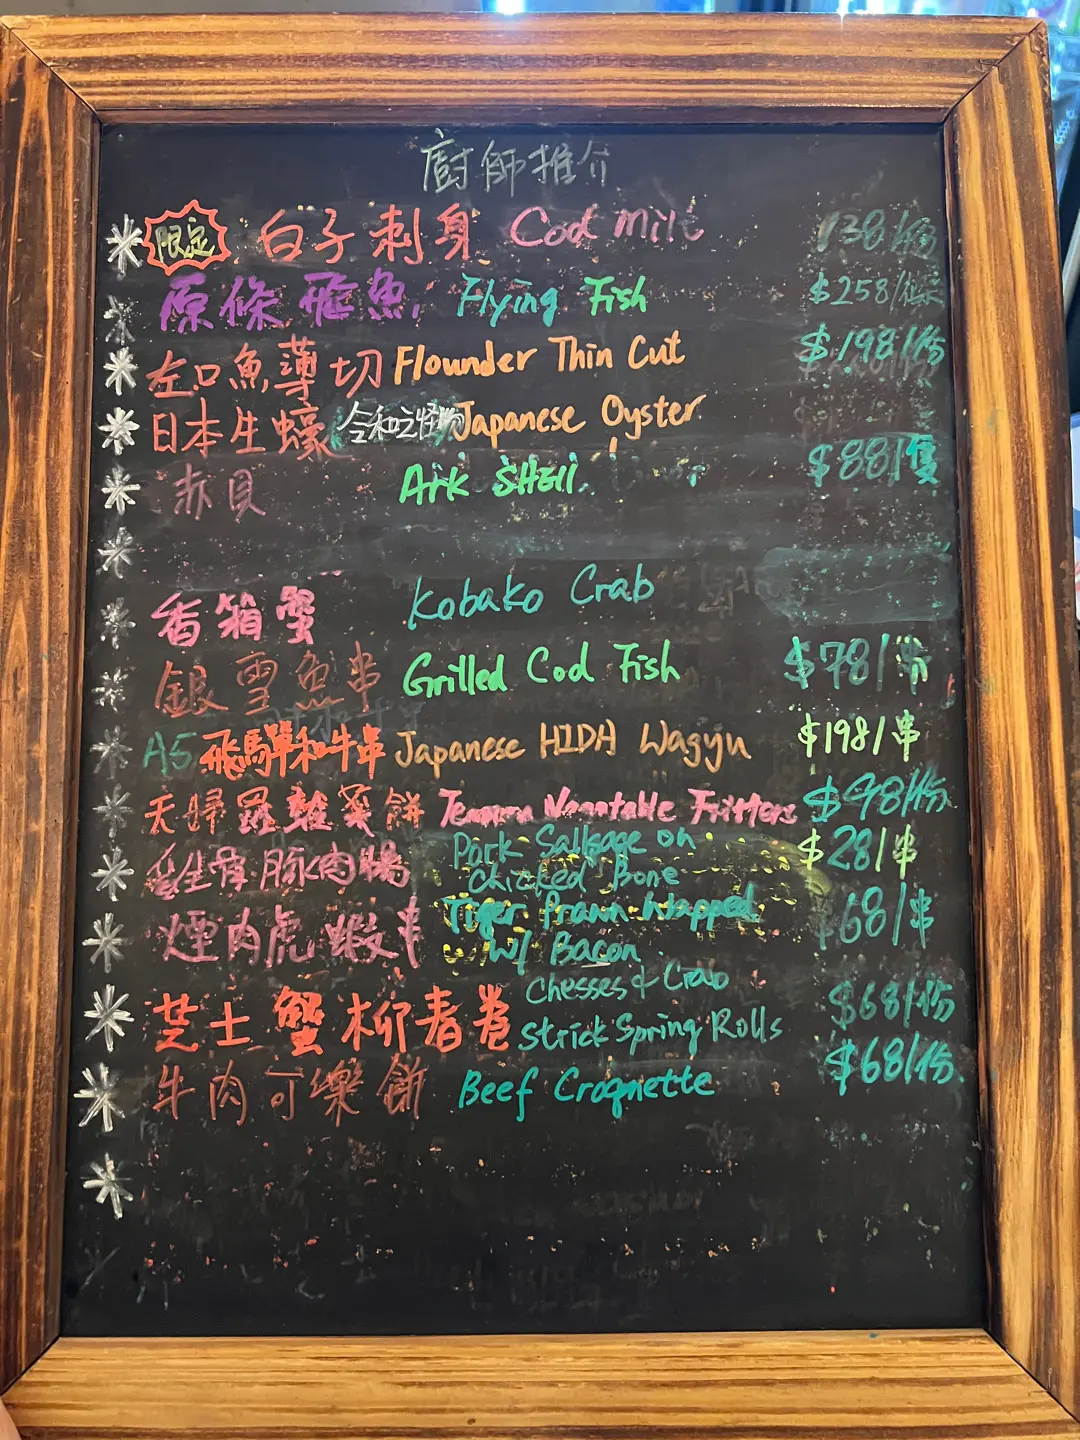 廚師推介
限定 白子刺身 Cod Milt 138/份
原條飛魚 Flying Fish $258/條
左口魚薄切 Flounder Thin Cut $198/份
日本生蠔 令和之怪物 Japanese Oyster
赤貝 Ark SHEll $88/隻
香箱蟹 Kobako Crab
銀雪魚串 Grilled Cod Fish $78/串
A5 飛驒和牛串 Japanese HIDA Wagyu $198/串
天婦羅雜菜餅 Fritters $98/份
豚肉腸 Pork on Bone $28/串
煙肉虎蝦串 Tiger Prawn Wrapped w/ Bacon $68/串
芝士蟹柳春卷 Chesses & Crab Strick Spring Rolls $68/份
牛肉可樂餅 Beef Croqnette $68/份